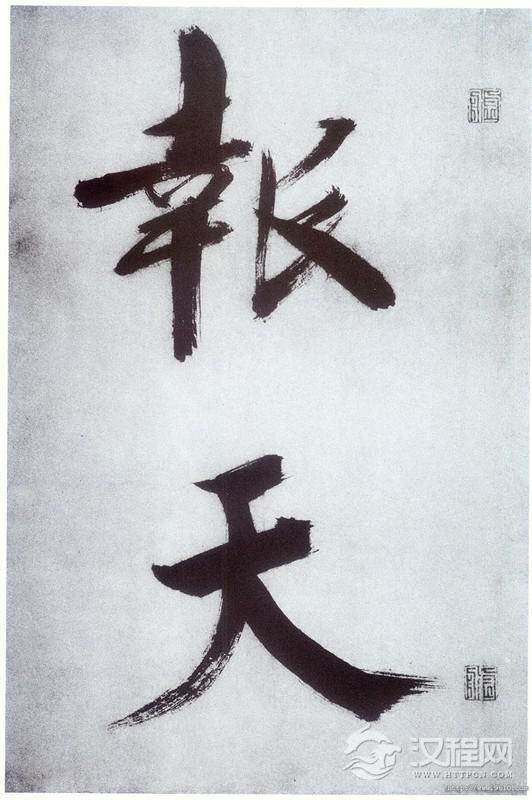 報
天
汉程网
WWW.HTTPCN.COM